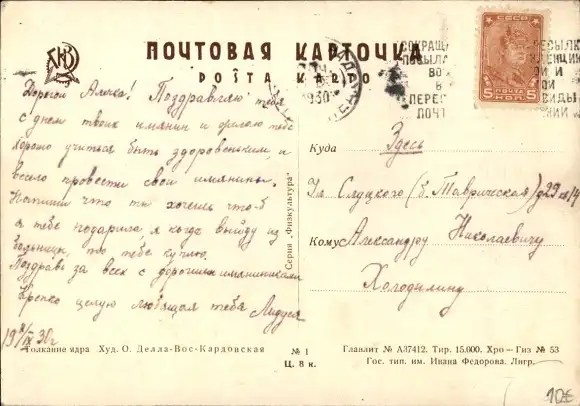 ПОЧТОВАЯ КАРТОЧКА
POŜTA KARTO
СССР
5 ПОЧТА 5
КОП
1930
Дорогой Аличка! Поздравляю тебя
с днем твоих имянин и желаю тебе
хорошо учиться быть здоровеньким, и
весело провести свои имянины.
Напиши что ты хочешь что-б
я тебе подарила, я когда выйду из
больницы, то тебе куплю.
Поздравь за всех с дорогими имянинниками
Крепко целую любящая тебя Лидуся
30г
Серия „Физкультура"
Куда Здесь
Ул Слуцкого (б. Таврическая) д 29 кв 14
Кому Александру Николаевичу
Холодилину
Толкание ядра Худ. О. Делла-Вос-Кардовская
№ 1
Ц. 8 к.
Главлит № А37412. Тир. 15.000. Хро—Гиз № 53
Гос. тип. им. Ивана Федорова. Лнгр.
10€